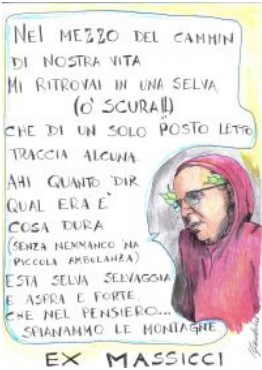 NEL MEZZO DEL CAMMIN
DI NOSTRA VITA
MI RITROVAI IN UNA SELVA
(O' SCURA!!)
CHE DI UN SOLO POSTO LETTO
TRACCIA ALCUNA.
AHI QUANTO DIR
QUAL ERA E'
COSA DURA
(SENZA NEMMANCO 'NA
PICCOLA AMBULANZA)
ESTA SELVA SELVAGGIA
E ASPRA E FORTE,
CHE NEL PENSIERO...
SPIANAMMO LE MONTAGNE
EX MASSICCI